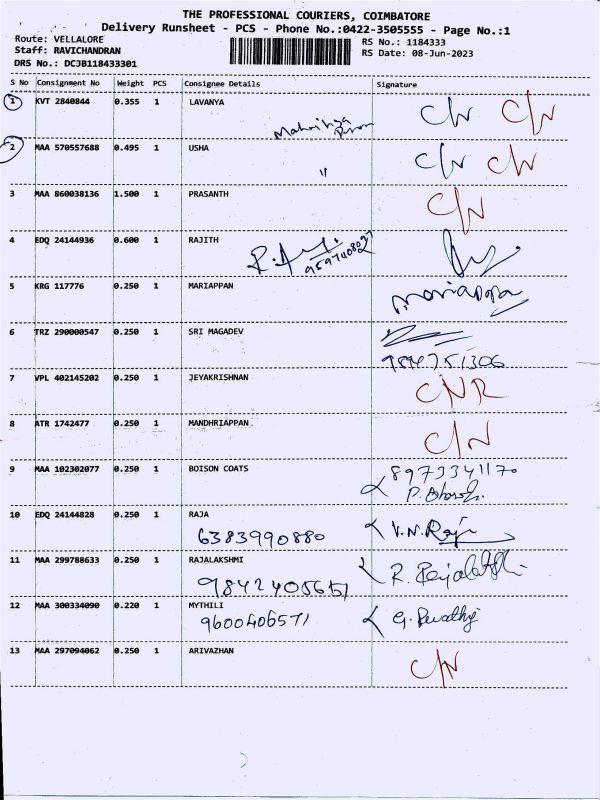 THE PROFESSIONAL COURIERS, COIMBATORE
Delivery Runsheet - PCS - Phone No.:0422-3505555 - Page No.:1
Route: VELLALORE
Staff: RAVICHANDRAN
DRS No.: DCJB118433301
RS No.: 1184333
RS Date: 08-Jun-2023
S No Consignment No Weight PCS Consignee Details Signature
1 KVT 2840844 0.355 1 LAVANYA C/N C/N
2 MAA 570557688 0.495 1 USHA C/N C/N
"
3 MAA 860038136 1.500 1 PRASANTH C/N
4 EDQ 24144936 0.600 1 RAJITH
5 KRG 117776 0.250 1 MARIAPPAN mariappa
6 TRZ 290000547 0.250 1 SRI MAGADEV
9894751306
7 VPL 402145202 0.250 1 JEYAKRISHNAN CNR
8 ATR 1742477 0.250 1 MANDHRIAPPAN C/N
9 MAA 102302077 0.250 1 BOISON COATS 8973341170
10 EDQ 24144828 0.250 1 RAJA
6383990880 V.N.Raja
11 MAA 299788633 0.250 1 RAJALAKSHMI
9842405651 R.
12 MAA 300334090 0.220 1 MYTHILI
9600406571 G.
13 MAA 297094062 0.250 1 ARIVAZHAN C/N